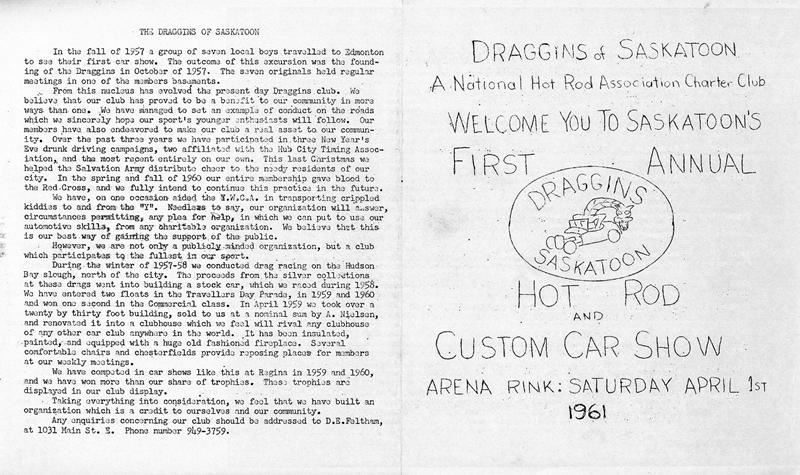 THE DRAGGINS OF SASKATOON
In the fall of 1957 a group of seven local boys travelled to Edmonton
to see their first car show. The outcome of this excursion was the found-
ing of the Draggins in October of 1957. The seven originals held regular
meetings in one of the members basements.
From this nucleus has evolved the present day Draggins club. We
believe that our club has proved to be a benefit to our community in more
ways than one. We have managed to set an example of conduct on the roads
which we sincerely hope our sport's younger enthusiasts will follow. Our
members have also endeavored to make our club a real asset to our commun-
ity. Over the past three years we have participated in three New Year's
Eve drunk driving campaigns, two affiliated with the Hub City Timing Assoc-
iation, and the most repent entirely on our own. This last Christmas we
helped the Salvation Army distribute cheer to the needy residents of our
city. In the spring and fall of 1960 our entire membership gave blood to
the Red Cross, and we fully intend to continue this practice in the future.
We have, on one occasion aided the Y.W.C.A. in transporting crippled
kiddies to and from the "Y". Needless to say, our organization will answer,
circumstances permitting, any plea for help, in which we can put to use our
automotive skills, from any charitable organization. We believe that this
is our best way of gaining the support of the public.
However, we are not only a publicly minded organization, but a club
which participates to the fullest in our sport.
During the winter of 1957-58 we conducted drag racing on the Hudson
Bay slough, north of the city. The proceeds from the silver collections
at these drags went into building a stock car, which we raced during 1958.
We have entered two floats in the Travellers Day Parade, in 1959 and 1960
and won one second in the Commercial class. In April 1959 we took over a
twenty by thirty foot building, sold to us at a nominal sum by A. Nielsen,
and renovated it into a clubhouse which we feel will rival any clubhouse
of any other car club anywhere in the world. It has been insulated,
painted, and equipped with a huge old fashioned fireplace. Several
comfortable chairs and chesterfields provide reposing places for members
at our weekly meetings.
We have competed in car shows like this at Regina in 1959 and 1960,
and we have won more than our share of trophies. These trophies are
displayed in our club display.
Taking everything into consideration, we feel that we have built an
organization which is a credit to ourselves and our community.
Any enquiries concerning our club should be addressed to D.E.Feltham,
at 1031 Main St. E. Phone number 949-3759.
DRAGGINS of SASKATOON
A National Hot Rod Association Charter Club
WELCOME YOU TO SASKATOON'S
FIRST ANNUAL
DRAGGINS
SASKATOON
HOT ROD
AND
CUSTOM CAR SHOW
ARENA RINK: SATURDAY APRIL 1ST
1961